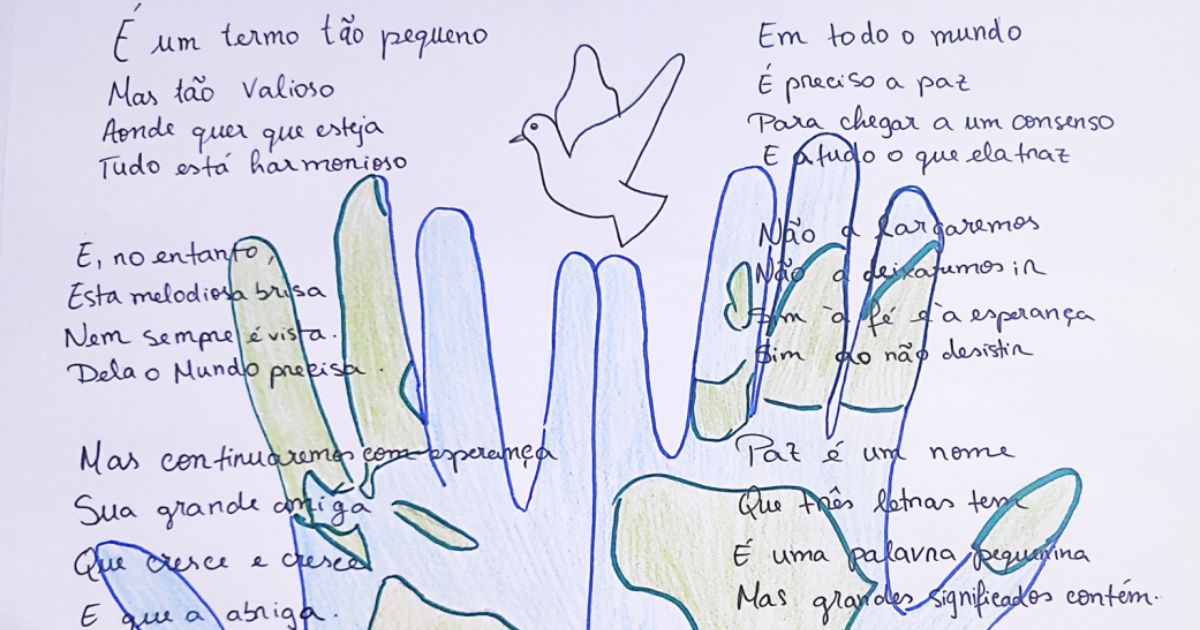 É um termo tão pequeno
Mas tão valioso
Aonde quer que esteja
Tudo está harmonioso
E, no entanto,
Esta melodiosa brisa
Nem sempre é vista.
Dela o Mundo precisa.
Mas continuaremos com esperança
Sua grande amiga
Que cresce e cresce
E que a abriga.
Em todo o mundo
É preciso a paz
Para chegar a um consenso
E a tudo o que ela traz
Não a largaremos
Não a deixaremos ir
Sim à fé e à esperança
Sim ao não desistir
Paz é um nome
Que três letras tem
É uma palavra pequenina
Mas grandes significados contém.